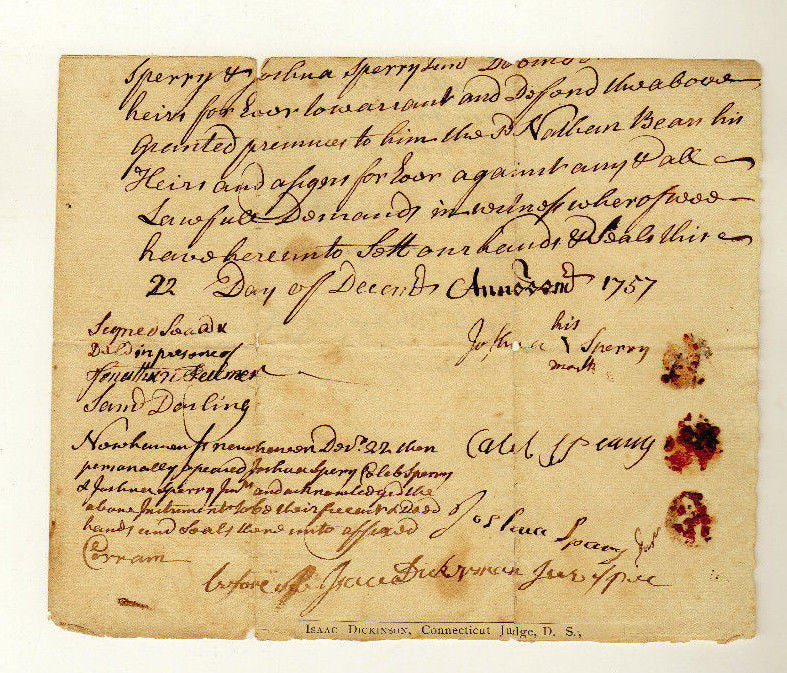 Sperry & Joshua Sperry Junr Do
heirs for Ever to warrant and Defend the above
Granted premises to him the Sd Nathan Bears his
Heirs and asigns for Ever against any & all
Lawfull Demands in witness wherof wee
have hereunto Sett our hands & Seals this
22 Day of Decemb Annodom 1757
Signed Seald &
Deld in presence of
Jonathan
Samll Darling
Joshua his Sperry
mark
Caleb Sperry
Newhaven ss newhaven Decr. 22 then
personally apeared Joshua Spery Caleb Sperry
& Joshua Sperry Junr and acknowledged the
above Instrument to be their free act & Deed
hands and Seals thereunto affixed
Joshua Spery Junr
Corram
before me Isaac Dickerman Just Pac
Isaac Dickinson, Connecticut Judge, D. S.,